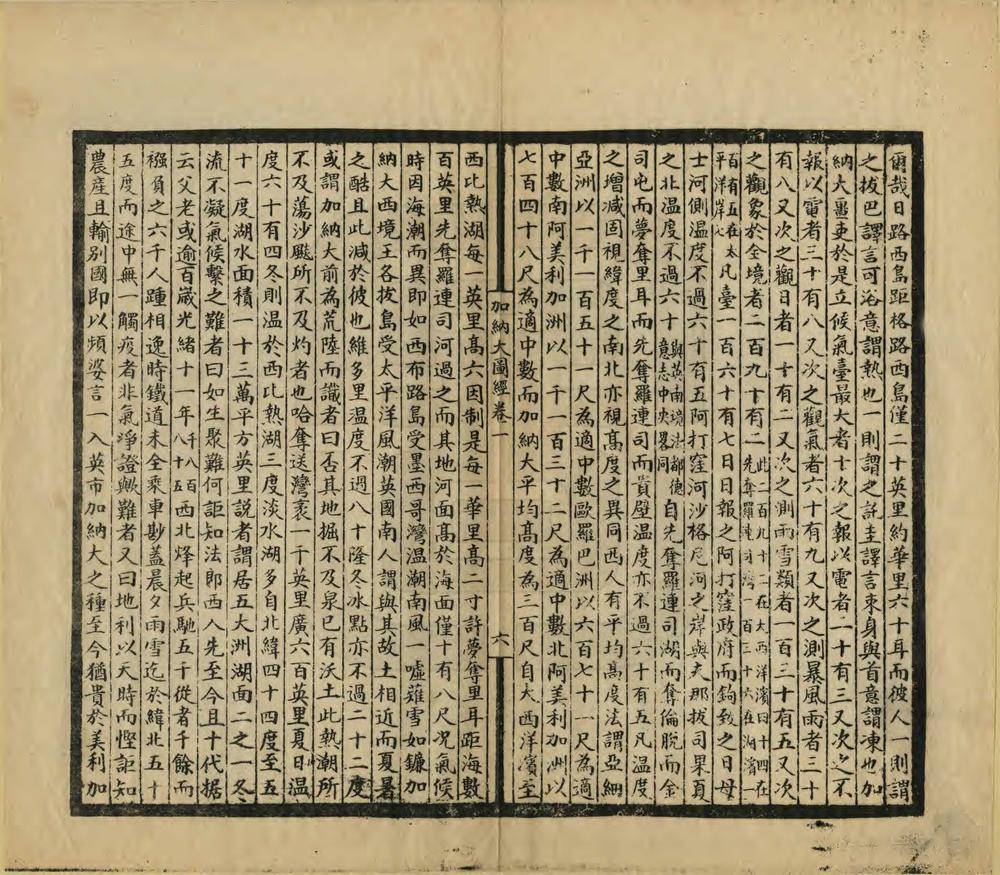 爾哉日路西島距格路西島僅二十英里約華里六十耳而彼人一則謂
之拔巴譯言可浴意謂熱也一則謂之託圭譯言束身與首意謂凍也加
納大畺吏於是立候氣臺最大者十次之報以電者二十有三又次之不
報以電者三十有八又次之觀氣者六十有九又次之測暴風雨者三十
有八又次之觀日者一十有二又次之測雨雪類者一百三十有五又次
之觀象於全境者二百九十有二先奪羅連司灣一百三十六在湖濱一此二百九十二在大西洋濱四十四在
百有五在太平洋岸七凡臺一百六十有七日日報之阿打窪政府而鉤致之日母
士河側溫度不過六十有五阿打窪河沙格尼河之岸與夫那拔司果頁
之北溫度不過六十與英南境法都德意志中央畧同自先奪羅連司湖而奪倫脫而金
司屯而夢奪里耳而先奪羅連司而貴壁溫度亦不過六十有五凡溫度
之增減固視緯度之南北亦視高度之異同西人有平均高度法謂亞細
亞洲以一千一百五十一尺為適中數歐羅巴洲以六百七十一尺為適
中數南阿美利加洲以一千一百三十二尺為適中數北阿美利加洲以
七百四十八尺為適中數而加納大平均高度為三百尺自大西洋濱至
加納大圖經卷一
六
西比熱湖每一英里高六因制是每一華里高二寸許夢奪里耳距海數
百英里先奪羅連司河過之而其地河面高於海面僅十有八尺況氣候
時因海潮而異即如西布路島受墨西哥灣溫潮南風一噓薙雪如鎌加
納大西境王各拔島受太平洋風潮英國南人謂與其故土相近而夏暑
之酷且此減於彼也維多里溫度不過八十隆冬冰點亦不過二十二度
或謂加納大前為荒陸而識者曰否其地掘不及泉已有沃土此熱潮所
不及蕩沙颺所不及灼者也哈奪送灣袤一千英里廣六百英里夏日溫
度六十有四冬則溫於西比熱湖三度淡水湖多自北緯四十四度至五
十一度湖水面積一十三萬平方英里說者謂居五大洲湖面二之一冬
流不凝氣候繫之難者曰如生聚難何詎知法郎西人先至今且十代据
云父老或逾百歲光緒十一年千八百八十五西北烽起兵馳五千從者千餘而
襁負之六千人踵相逸時鐵道未全乘車尠蓋晨夕雨雪迄於緯北五十
五度而途中無一觸疫者非氣淨證歟難者又曰地利以天時而慳詎知
農產且輪別國即以頻婆言一入英市加納大之種至今猶貴於美利加